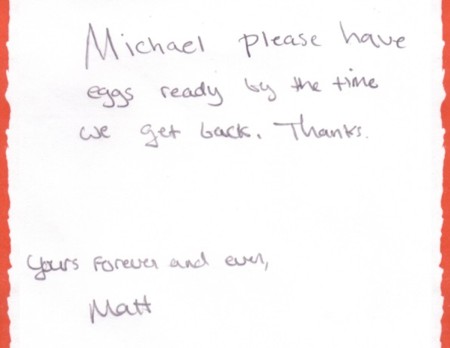 Michael please have
eggs ready by the time
we get back. Thanks.
Yours Forever and ever,
Matt